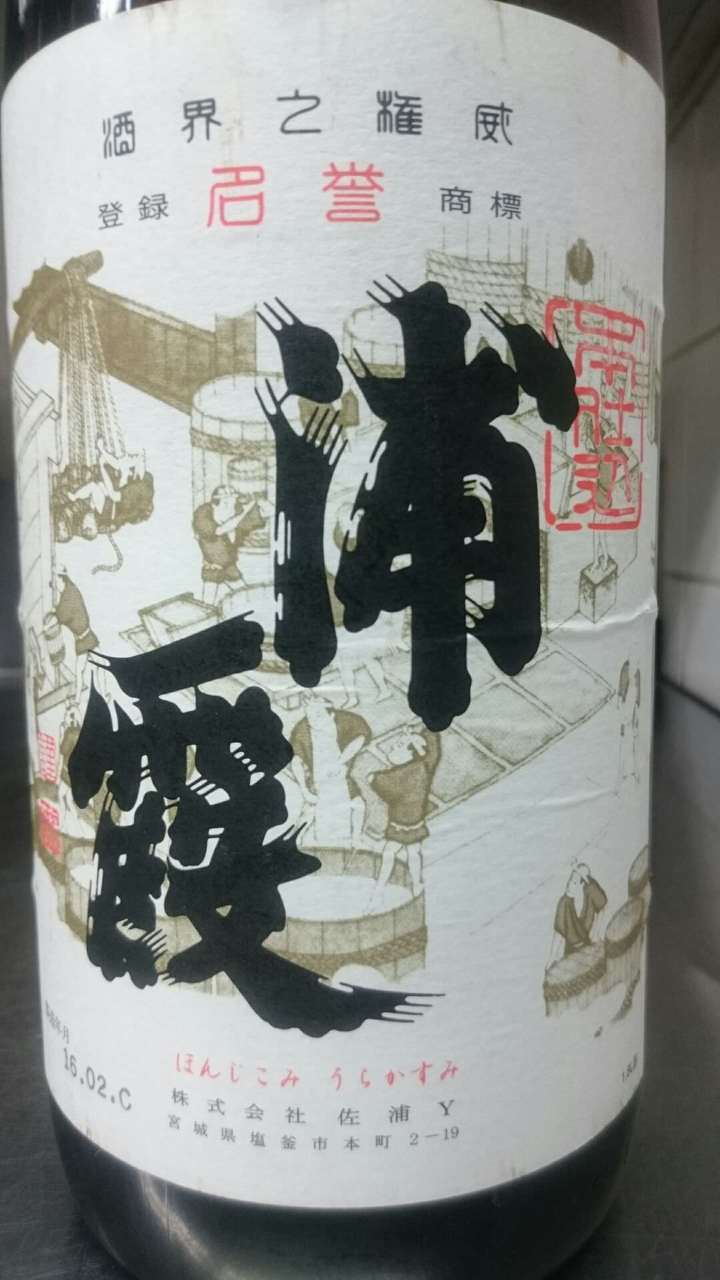 酒界之権威
登録 名誉 商標
本仕込
浦霞
製造年月
16.02.C
ほんじこみ うらかすみ
株式会社佐浦Y
宮城県塩釜市本町2-19
1.8L